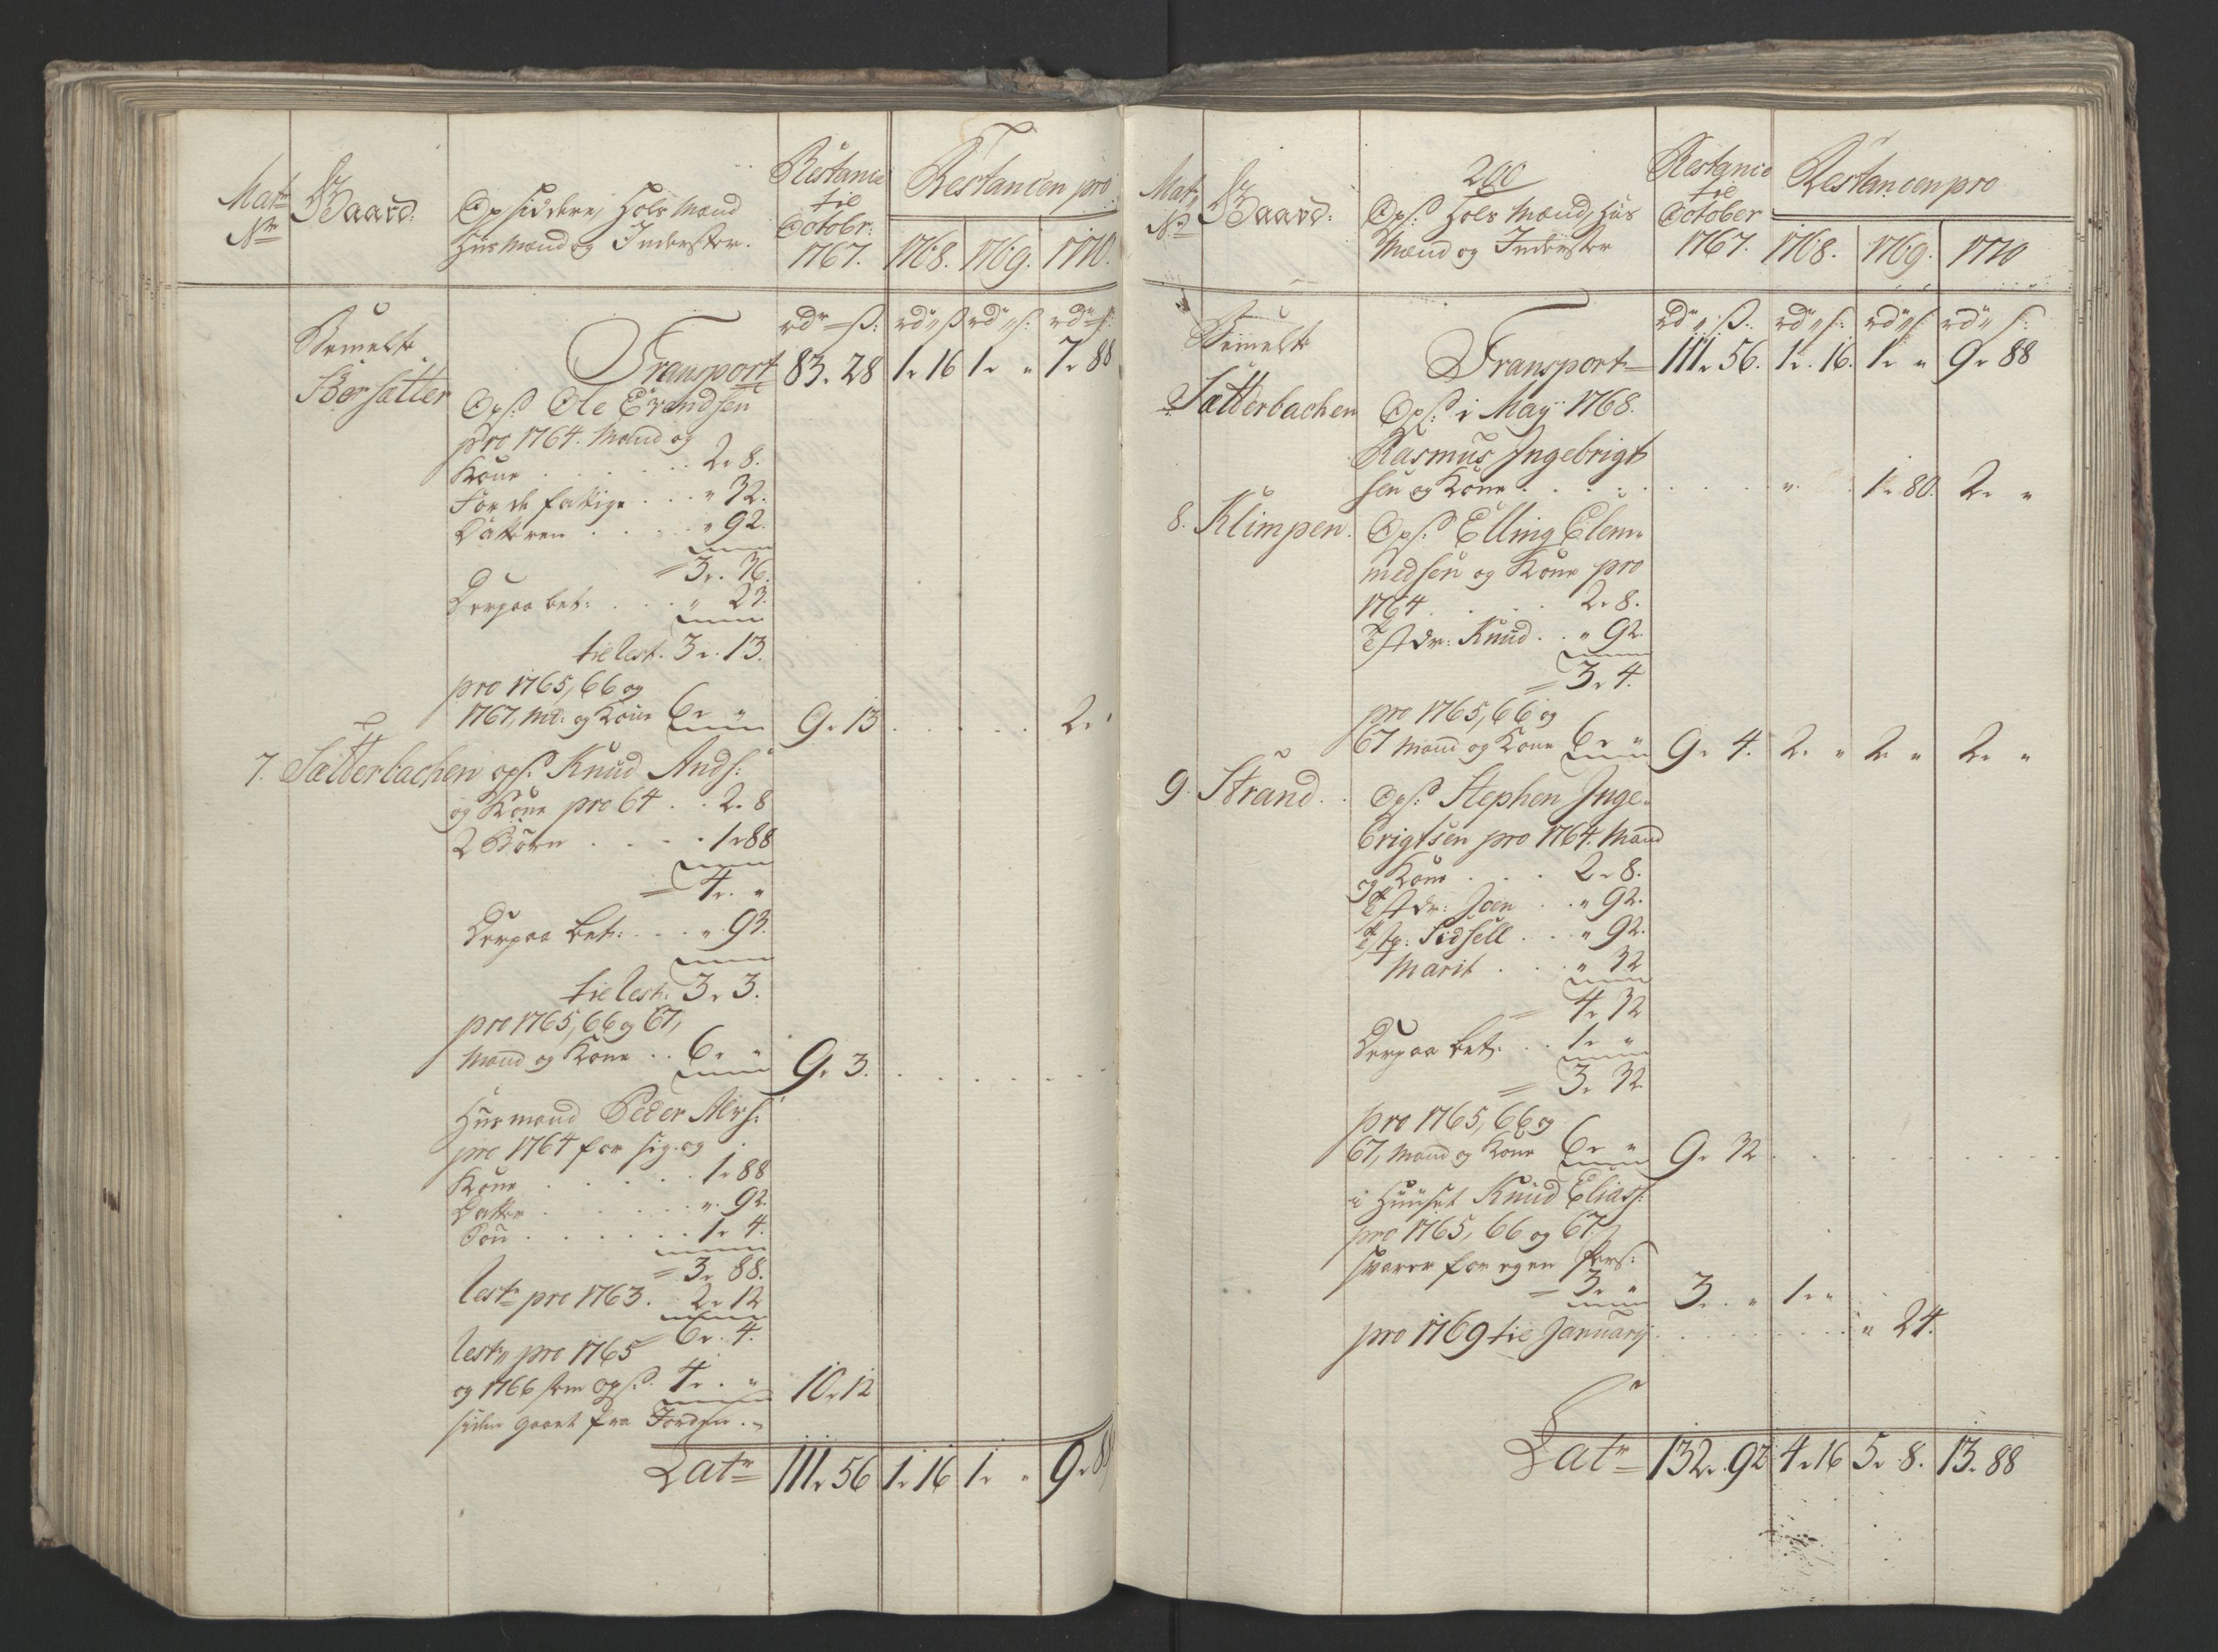 Matr Nr
Gaard:
Opsiddere, Hols Mænd
Huusmænd og Inderster.
Restance
til
Octobr:
1767.
Restancen pro
1768. 1769. 1770.
rdr ß: rdr ß rdr ß: rdr ß:
Bemelte Transport 83. 28 1. 16 1. " 7. 88
Børsætter
Ops: Ole Evendsen
pro 1764. Mand og
Kone . . . . 2. 8.
For de fattige . . . " 32.
Datteren . . . " 92.
= 3. 36.
Derpaa bet: . . . " 23.
til Rest. 3. 13.
pro 1765, 66 og
1767, Md: og Kone 6. " 9. 13 . . . . . 2. "
7. Sætterbachen ops: Knud Ands:
og Kone pro 64 . . 2. 8
2 Børn . . . . 1. 88
= 4. "
Derpaa bet: . . . " 93.
til Rest: 3. 3.
pro 1765, 66 og 67,
Mand og Kone . . 6. " 9. 3. . . . . .
Huusmand Peder
pro 1764 for sig og
Kone . . . . . 1. 88
Datter . . . . . " 92
Søn . . . . . . 1. 4.
= 3. 88.
Rest pro 1763. . 2. 12
= 6. 4.
Rest pro 1765
og 1766 som ops: 4. " 10. 12
siden gaaet fra Jorden.
Latr 111. 56 1. 16 1. " 9. 88
200
Matr Nr
Gaard:
Ops: Hols Mænd, Huus
Mænd og Inderster
Restance
til
October
1767.
Restancen pro
1768. 1769. 1770
rdr ß: rdr ß: rdr ß: rdr ß:
Bemelte Transport 111. 56. 1. 16. 1. " 9. 88
Sætterbachen Ops: i May 1768.
Rasmus Ingebrigt
sen og Kone . . . . . . . " . . 1. 80. 2. "
8. Klimpen. Ops: Elling Clem-
medsen og Kone pro
1764 . . . . 2. 8.
Knud . . " 92
= 3. 4.
pro 1765, 66 og
67 Mand og Kone 6. " 9. 4. 2. " 2. " 2. "
9. Strand . . Ops: Stephen Inge-
brigtsen pro 1764. Mand
og Kone . . . 2. 8.
Joen . . " 92.
Sidsell . . . " 92.
Marit . . . " 32
= 4. 32
Derpaa bet: . . 1. "
= 3. 32
pro 1765, 66 og
67, Mand og Kone 6. " 9. 32 . . . . . .
i Huuset Knud Eliass:
pro 1765, 66 og 67,
svarer for egen Pers:
= 3. " 3. " 1. "
pro 1769 til January . . . . . . . " 24.
Latr 132. 92 4. 16 5. 8. 13. 88